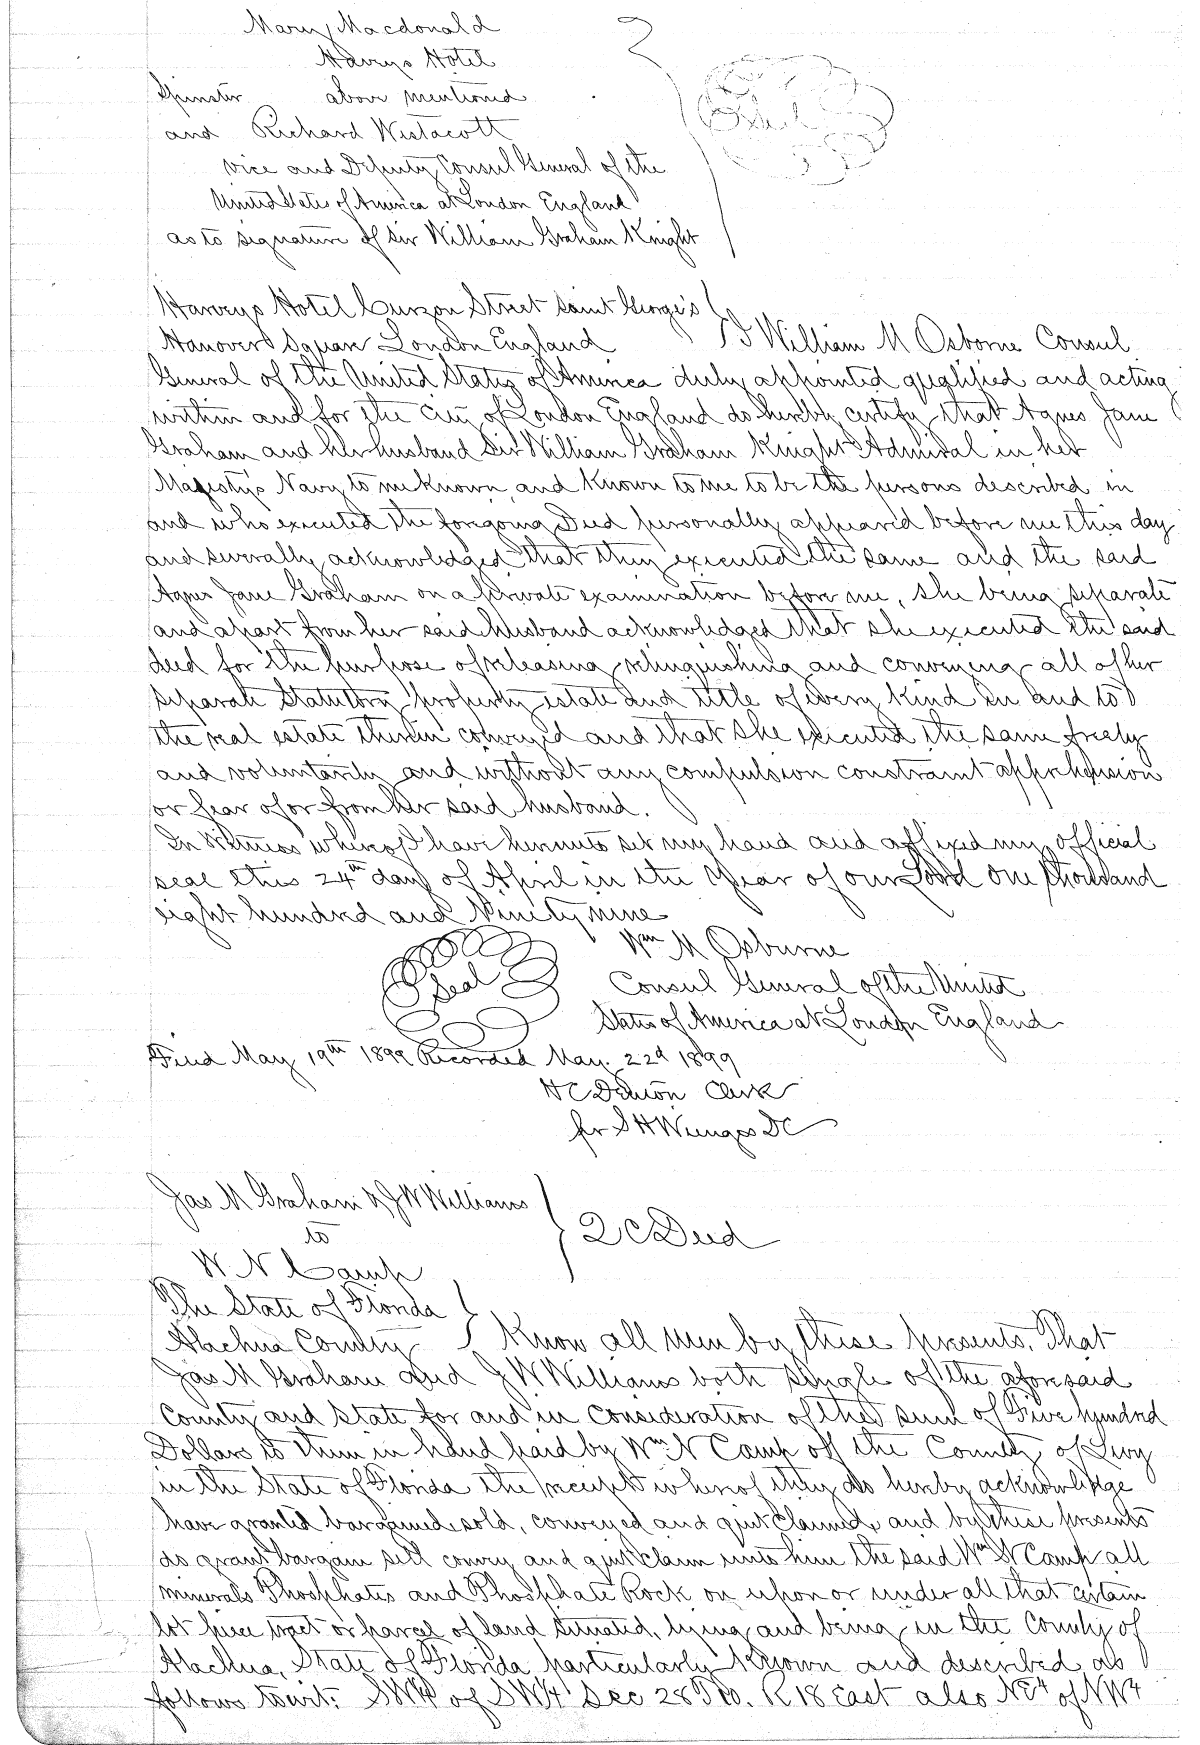 Mary Macdonald
Harveys Hotel
Spinster above mentioned
and Richard Westacott
vice and Deputy Consul General of the
United States of America at London England
as to signature of Sir William Graham Knight
Seal
Harveys Hotel Curzon Street Saint George's
Hanover Square London England I William M Osborne Consul
General of the United States of America duly appointed qualified and acting
within and for the City of London England do hereby certify that Agnes Jane
Graham and her husband Sir William Graham Knight Admiral in her
Majesty's Navy to me known, and known to me to be the persons described in
and who executed the foregoing Deed personally appeared before me this day
and severally acknowledged that they executed the same and the said
Agnes Jane Graham on a private examination before me, she being separate
and apart from her said husband acknowledged that she executed the said
deed for the purpose of releasing relinquishing and conveying all of her
separate statutory property estate and title of every kind in and to
the real estate therein conveyed and that she executed the same freely
and voluntarily and without any compulsion constraint apprehension
or fear of or from her said husband.
In Witness whereof I have hereunto set my hand and affixed my official
seal this 24th day of April in the Year of our Lord One thousand
eight hundred and Ninety nine
Wm M Osburne
Seal
Consul General of the United
States of America at London England
Filed May 19th 1899 Recorded May. 22d 1899
H C Denton Clerk
for S H Wienges DC
Jas M Graham & J W Williams
to
W. N Camp
Q C Deed
The State of Florida
Alachua County Know all Men by these presents, That
Jas M Graham and J W Williams both single of the aforesaid
County and State for and in consideration of the sum of Five hundred
Dollars to them in hand paid by Wm N Camp of the County of Levy
in the State of Florida the receipt whereof they do hereby acknowledge
have granted bargained, sold, conveyed and quit claimed, and by these presents
do grant bargain sell convey and quit claim unto him the said Wm N Camp all
minerals Phosphates and Phosphate Rock on upon or under all that certain
lot piece tract or parcel of land situated, lying and being in the County of
Alachua, State of Florida particularly known and described as
follows towit: SW4 of SW4 Sec 28 T 10. R 18 East also NE4 of NW4